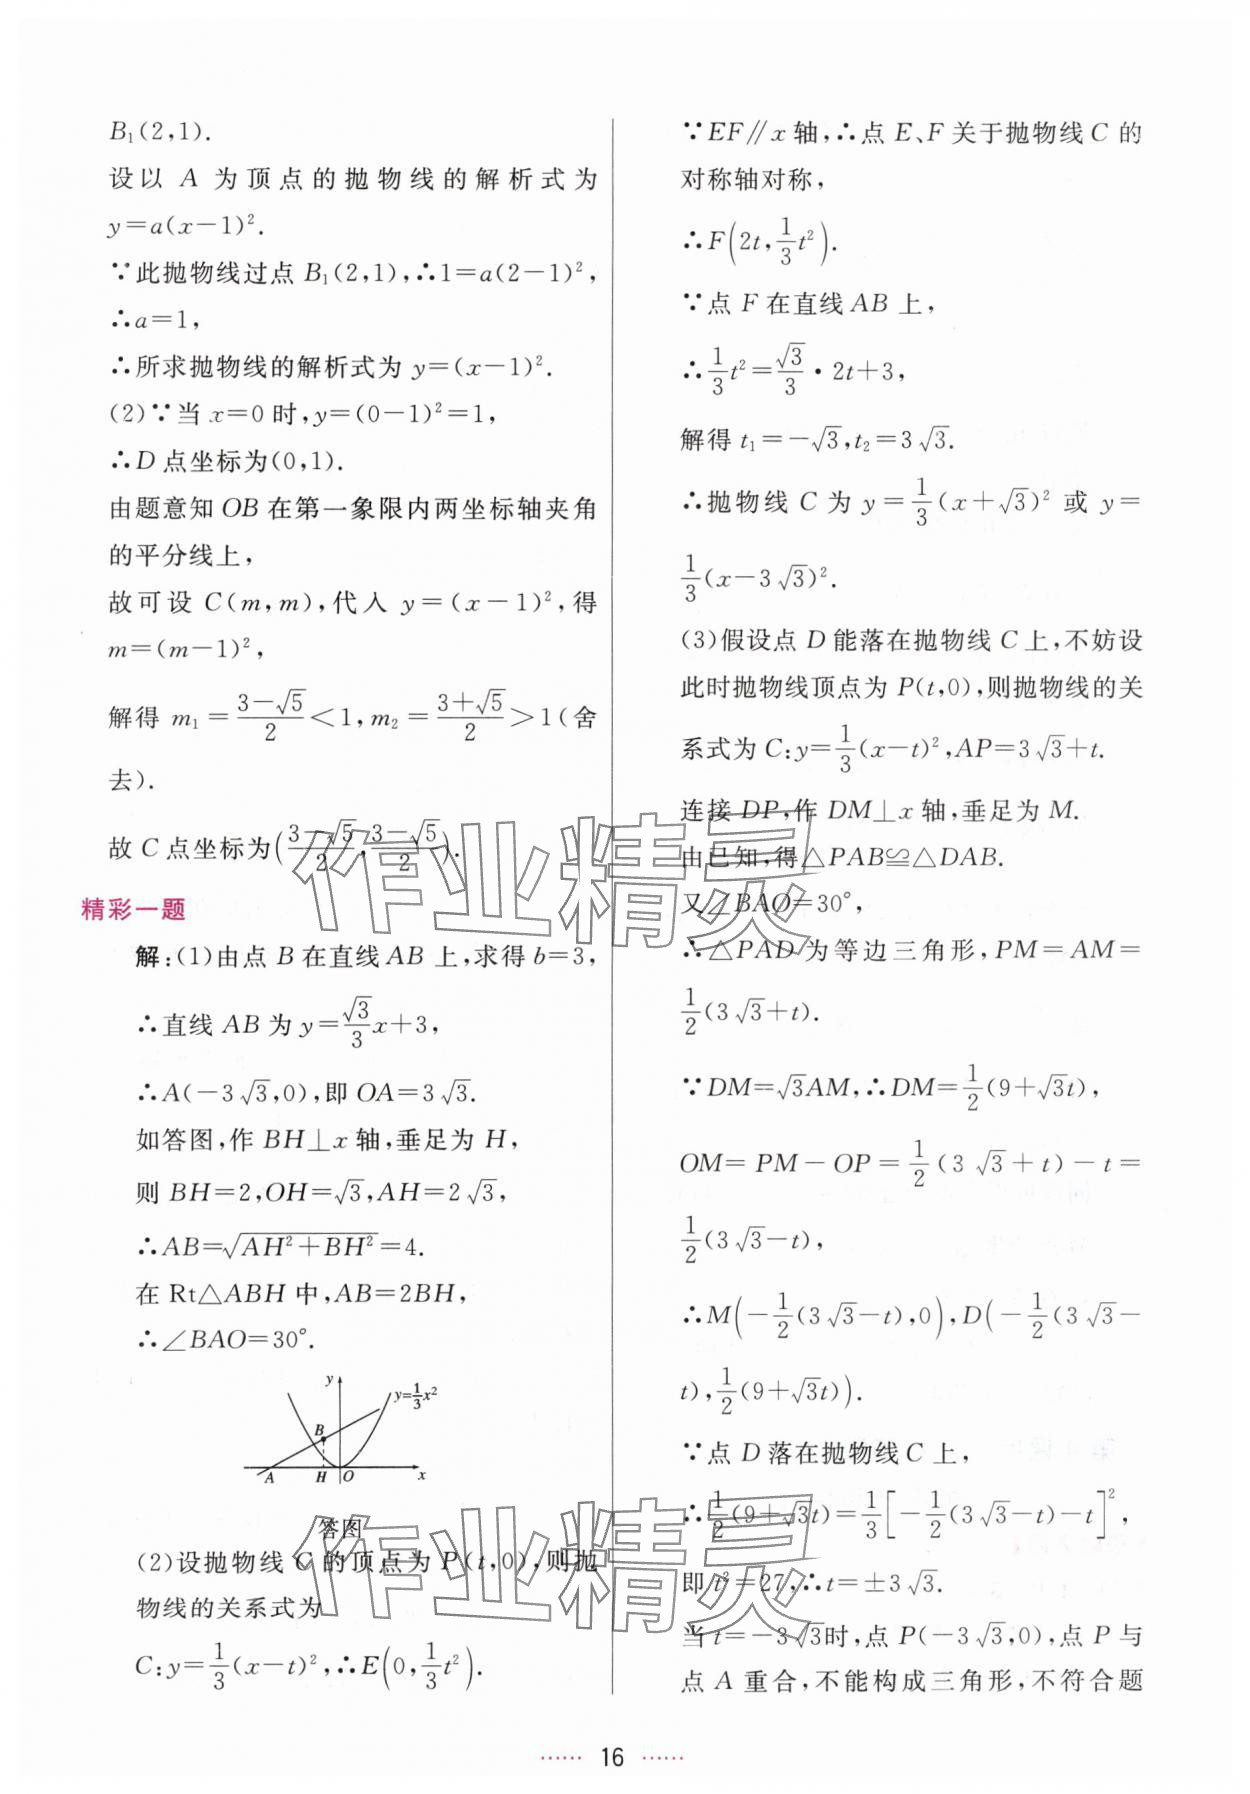 B₁(2,1).
设以 A 为顶点的抛物线的解析式为
y=a(x-1)².
∵此抛物线过点 B₁(2,1),∴1=a(2-1)²,
∴a=1,
∴所求抛物线的解析式为 y=(x-1)².
(2)∵当 x=0 时,y=(0-1)²=1,
∴D 点坐标为(0,1).
由题意知 OB 在第一象限内两坐标轴夹角
的平分线上,
故可设 C(m,m),代入 y=(x-1)²,得
m=(m-1)²,
解得 m₁=\frac{3-√5}{2}<1,m₂=\frac{3+√5}{2}>1(舍
去).
故 C 点坐标为(\frac{3-√5}{2},\frac{3-√5}{2}).
精彩一题
解:(1)由点 B 在直线 AB 上,求得 b=3,
∴直线 AB 为 y=\frac{√3}{3}x+3,
∴A(-3√3,0),即 OA=3√3.
如答图,作 BH⊥x 轴,垂足为 H,
则 BH=2,OH=√3,AH=2√3,
∴AB=√(AH²+BH²)=4.
在 Rt△ABH 中,AB=2BH,
∴∠BAO=30°.
y
y=\frac{1}{3}x²
B
A H O x
答图
(2)设抛物线 C 的顶点为 P(t,0),则抛
物线的关系式为
C:y=\frac{1}{3}(x-t)²,∴E(0,\frac{1}{3}t²).
∵EF∥x 轴,∴点 E、F 关于抛物线 C 的
对称轴对称,
∴F(2t,\frac{1}{3}t²).
∵点 F 在直线 AB 上,
∴\frac{1}{3}t²=\frac{√3}{3}·2t+3,
解得 t₁=-√3,t₂=3√3.
∴抛物线 C 为 y=\frac{1}{3}(x+√3)² 或 y=
\frac{1}{3}(x-3√3)².
(3)假设点 D 能落在抛物线 C 上,不妨设
此时抛物线顶点为 P(t,0),则抛物线的关
系式为 C:y=\frac{1}{3}(x-t)²,AP=3√3+t.
连接 DP,作 DM⊥x 轴,垂足为 M.
由已知,得△PAB≌△DAB.
又∠BAO=30°,
∴△PAD 为等边三角形,PM=AM=
\frac{1}{2}(3√3+t).
∵DM=√3AM,∴DM=\frac{1}{2}(9+√3t),
OM=PM-OP=\frac{1}{2}(3√3+t)-t=
\frac{1}{2}(3√3-t),
∴M(-\frac{1}{2}(3√3-t),0),D(-\frac{1}{2}(3√3-
t),\frac{1}{2}(9+√3t)).
∵点 D 落在抛物线 C 上,
∴\frac{1}{2}(9+√3t)=\frac{1}{3}[-\frac{1}{2}(3√3-t)-t]²,
即 t²=27,∴t=±3√3.
当 t=-3√3时,点 P(-3√3,0),点 P 与
点 A 重合,不能构成三角形,不符合题
16
作业精灵
作业精灵